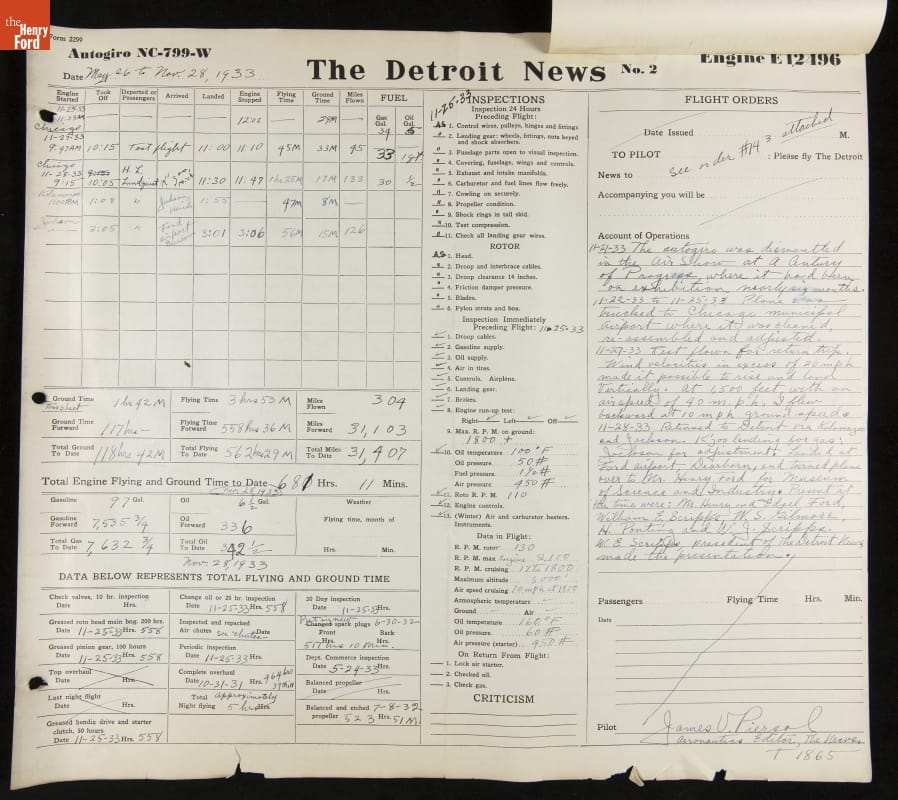 the
Henry
Ford
Form 2299
Autogiro NC-799-W
Date May 26 to Nov. 28, 1933
The Detroit News No. 2
Engine E12496
Engine Started
Took Off
Departed or Passengers
Arrived
Landed
Engine Stopped
Flying Time
Ground Time
Miles Flown
FUEL
Gas Gal.
Oil Gal.
11-25-33
11:33AM 1202 29M 34 5
Chicago
11-27-33
9:47AM 10:15 Test flight 11:00 11:10 45M 33M 45 33 1qt.
Chicago
11-28-33
9:15 10:05 H. L. Lindquist 11:30 11.47 1hr 25M 17M 133 30 1/2
1:08 " 1:55 47M 8M
2:05 " Ford airport Dearborn 3:01 3:06 56M 15M 126
Ground Time This sheet 1 hr 42 M
Flying Time 3 hrs 53 M
Miles Flown 304
Ground Time Forward 117 hrs -
Flying Time Forward 558 hrs 36 M
Miles Forward 31,103
Total Ground To Date 118 hrs 42 M
Total Flying To Date 562 hrs 29 M
Total Miles To Date 31,407
Total Engine Flying and Ground Time to Date 681 Hrs. 11 Mins.
Nov. 28, 1933
Gasoline 97 Gal.
Oil 6 1/2 Gal.
Weather
Gasoline Forward 7,535 3/4
Oil Forward 336
Flying time, month of
Total Gas To Date 7,632 3/4
Total Oil To Date 342 1/2
Hrs. Min.
Nov. 28, 1933
DATA BELOW REPRESENTS TOTAL FLYING AND GROUND TIME
Check valves, 10 hr. inspection
Date Hrs.
Change oil or 20 hr. inspection
Date 11-25-33 Hrs. 558
30 Day inspection
Date 11-25-33
Greased roto head main bng. 200 hrs.
Date 11-25-33 Hrs. 558
Inspected and repacked
Air chutes see chutes Date
Put in new
Changed spark plugs 6-30-32
Front Back
Hrs. Hrs.
517 hrs 10 Min.
Greased pinion gear, 100 hours
Date 11-25-33 Hrs. 558
Periodic inspection
Date 11-25-33
Dept. Commerce inspection
Date 5-24-33 Hrs.
Top overhaul
Date Hrs.
Complete overhaul
Date 10-31-31 Hrs. 464 hrs
Balanced propeller
Date Hrs.
Last night flight
Date Hrs.
Total Approximately
Night flying 5 hrs Hrs.
Balanced and etched 7-8-32
propeller 523 Hrs. 51 M.
Greased bendix drive and starter
clutch, 50 hours
Date 11-25-33 Hrs. 558
11-25-33
INSPECTIONS
Inspection 24 Hours
Preceding Flight:
1. Control wires, pulleys, hinges and fittings
2. Landing gear: wheels, fittings, nuts keyed
and shock absorbers.
3. Fuselage parts open to visual inspection.
4. Covering, fuselage, wings and controls.
5. Exhaust and intake manifolds.
6. Carburetor and fuel lines flow freely.
7. Cowling on securely.
8. Propeller condition.
9. Shock rings in tail skid.
10. Test compression.
11. Check all landing gear wires.
ROTOR
1. Head.
2. Droop and interbrace cables.
3. Droop clearance 14 inches.
4. Friction damper pressure.
5. Blades.
6. Pylon struts and box.
Inspection Immediately
Preceding Flight: 11-25-33
1. Droop cables.
2. Gasoline supply.
3. Oil supply.
4. Air in tires.
5. Controls. Airplane.
6. Landing gear.
7. Brakes.
8. Engine run-up test:
Right Left Off
9. Max. R. P. M. on ground:
1800 +
10. Oil temperature 100° F
Oil pressure 50 #
Fuel pressure 1 1/2 #
Air pressure 450 #
11. Roto R. P. M. 110
12. Engine controls.
(Winter) Air and carburetor heaters.
Instruments.
Data in Flight:
R. P. M. rotor 130
R. P. M. max engine 2100
R. P. M. cruising 17 to 1800
Maximum altitude 6000'
Air speed cruising
Atmospheric temperature
Ground Air
Oil temperature 160° F
Oil pressure 60 #
Air pressure (starter) 450 #
On Return From Flight:
1. Lock air starter.
2. Checked oil.
3. Check gas.
CRITICISM
FLIGHT ORDERS
Date Issued M.
See order #143 attached
TO PILOT : Please fly The Detroit
News to
Accompanying you will be
Account of Operations
11-21-33 The autogiro was dismantled
in the Air Show at A Century
of Progress, where it had been
on exhibition nearly six months.
11-22-33 to 11-25-33 Plane was
trucked to Chicago municipal
airport where it was cleaned,
re-assembled and adjusted.
11-27-33 Test flown for return trip.
Wind velocities in excess of 20 mph
made it possible to rise and land
vertically. At 6,500 feet with an
airspeed of 40 m.p.h. I flew
backward at 10 mph ground speed.
11-28-33 Returned to Detroit via Kalamazoo
and Jackson. landing for gas;
Jackson for adjustment. Landed at
Ford airport, Dearborn, and turned plane
over to Mr. Henry Ford for Museum
of Science and Industry. Present at
the time were: Mr. Henry and Edsel Ford,
William E. Scripps, W. S. Gilmore,
H. Ponting and W. J. Scripps.
W. E. Scripps, president of The Detroit News
made the presentation.
Passengers Flying Time Hrs. Min.
Date
Pilot James V. Piersol
Aeronautics Editor, The News
T 1865